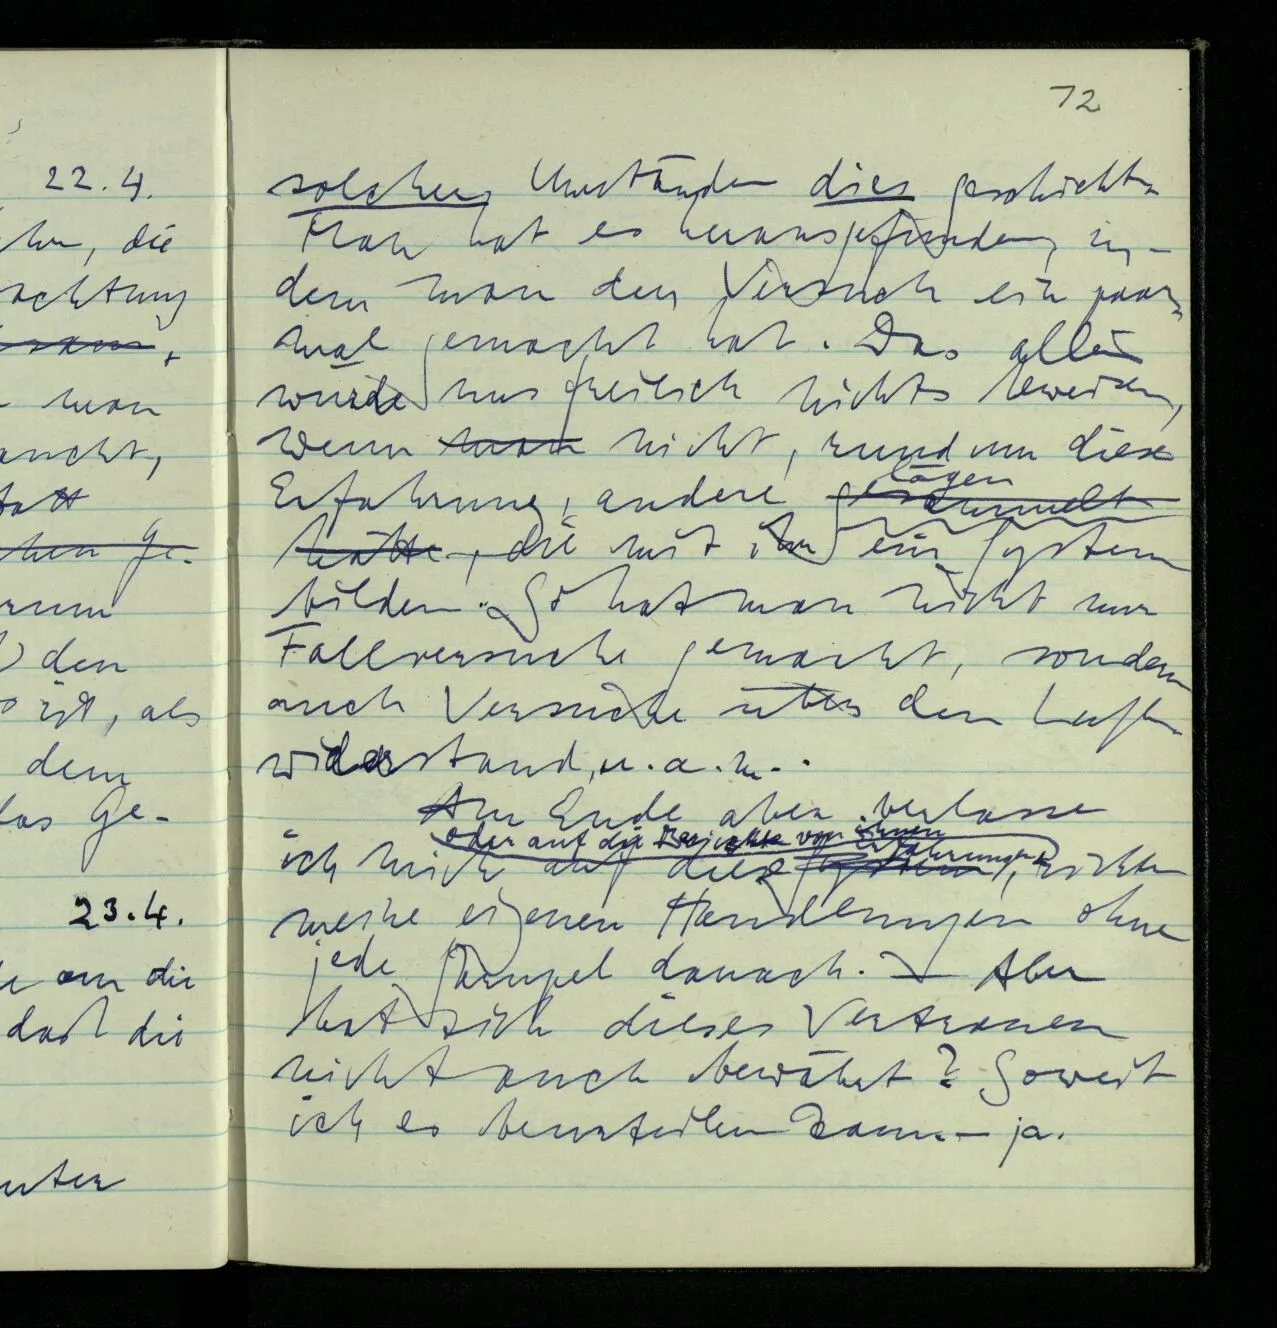 22.4.
die
achtung
man
ist, als
dem
das Ge-
23.4.
an die
dass die
72
solchen Umständen dies geschieht.
Man hat es herausgefunden, in-
dem man den Versuch ein paar
mal gemacht hat. Das allein
würde uns freilich nichts beweisen,
wenn man nicht, rund um diese
lägen
Erfahrung, andere gesammelt
hätte, die mit ihr ein System
bilden. So hat man nicht nur
Fallversuche gemacht, sondern
auch Versuche über den Luft-
widerstand, u.a.m..
Am Ende aber verlasse
oder auf die Berichte von ihnen
ich mich auf diese System Erfahrungen, richte
meine eigenen Handlungen ohne
jede Skrupel danach. – Aber
hat sich dieses Vertrauen
nicht auch bewährt? Soweit
ich es beurteilen kann – ja.